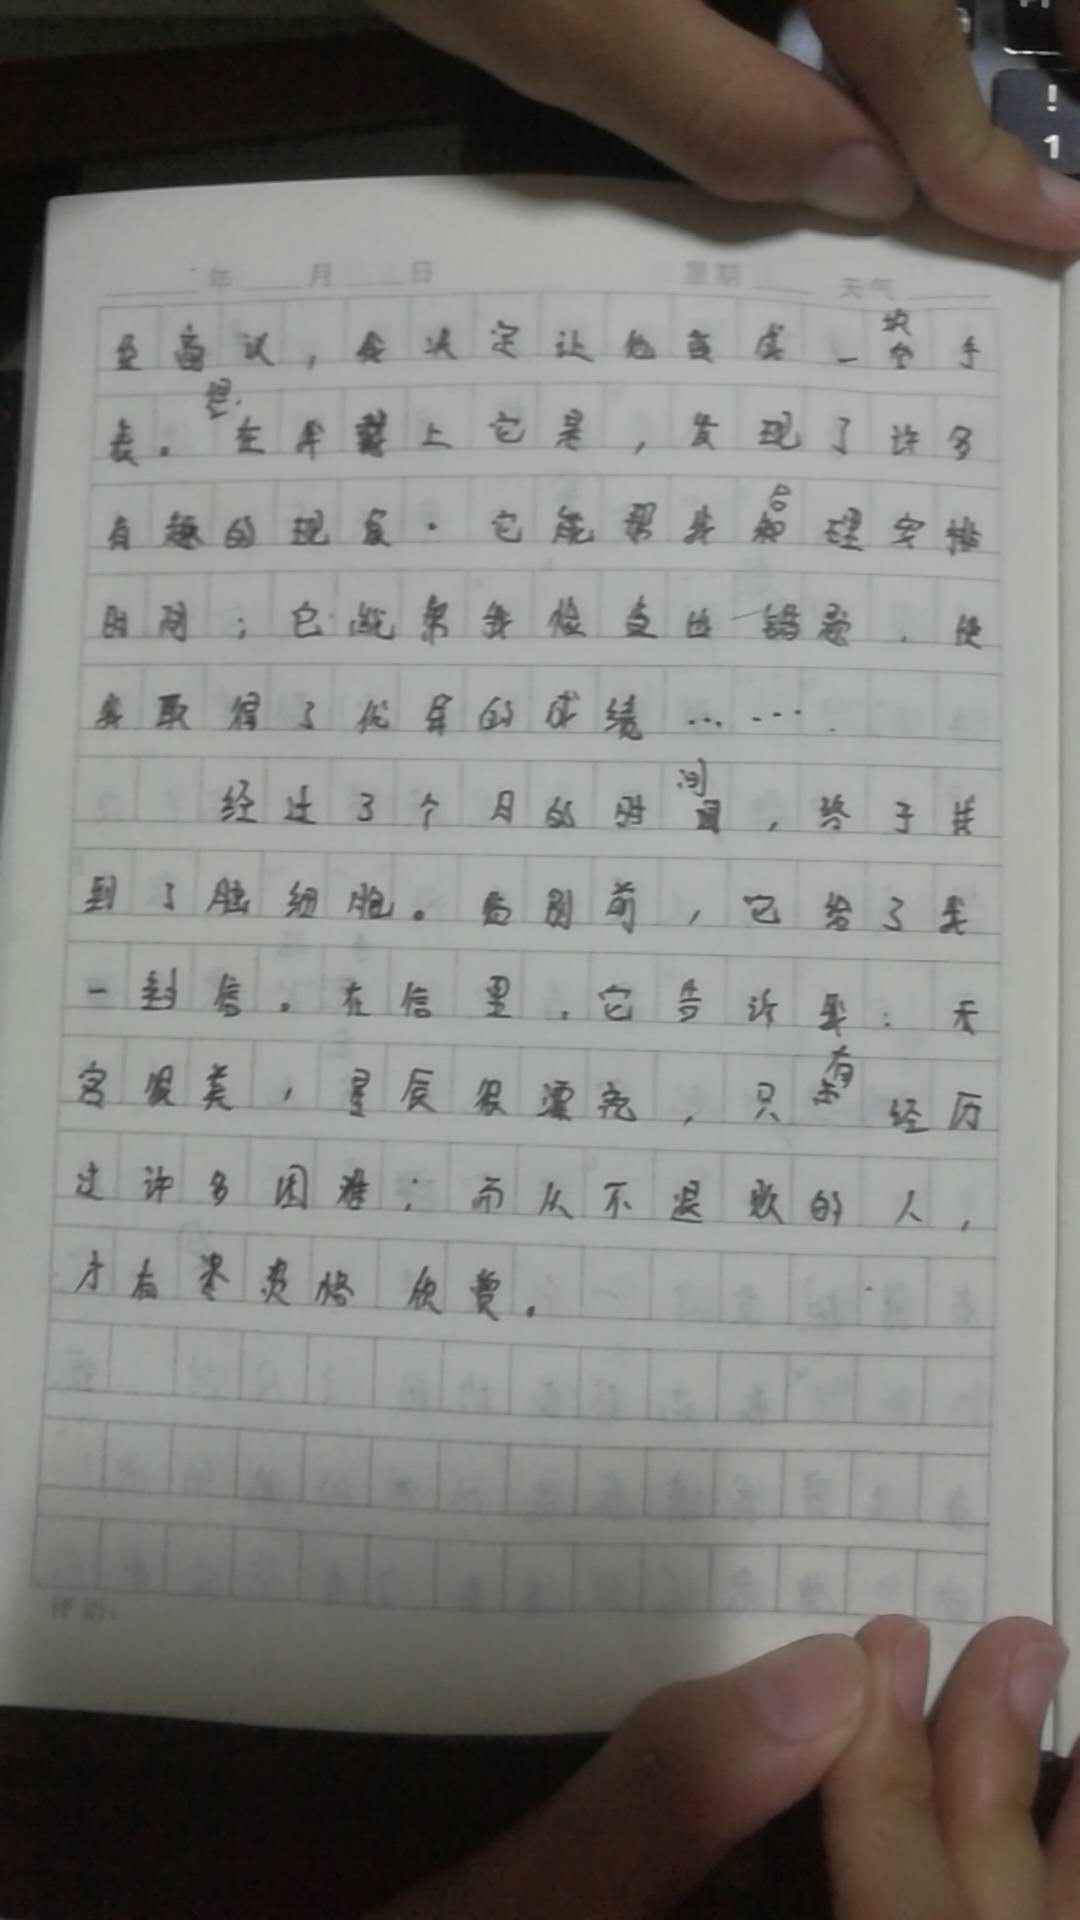 ! 1
年 月 日 星期 天气
商议，我决定让他变成一块手
表。在我戴上它是，发现了许多
有趣的现象。它能帮我合理安排
时间；它能帮我检查出错题，使
我取得了优异的成绩……
经过3个月的时间，终于找
到了脑细胞。告别前，它给了我
一封信。在信里，它告诉我：天
宫很美，星辰很漂亮，只有经历
过许多困难；而从不退败的人，
才有资格欣赏。
评语：